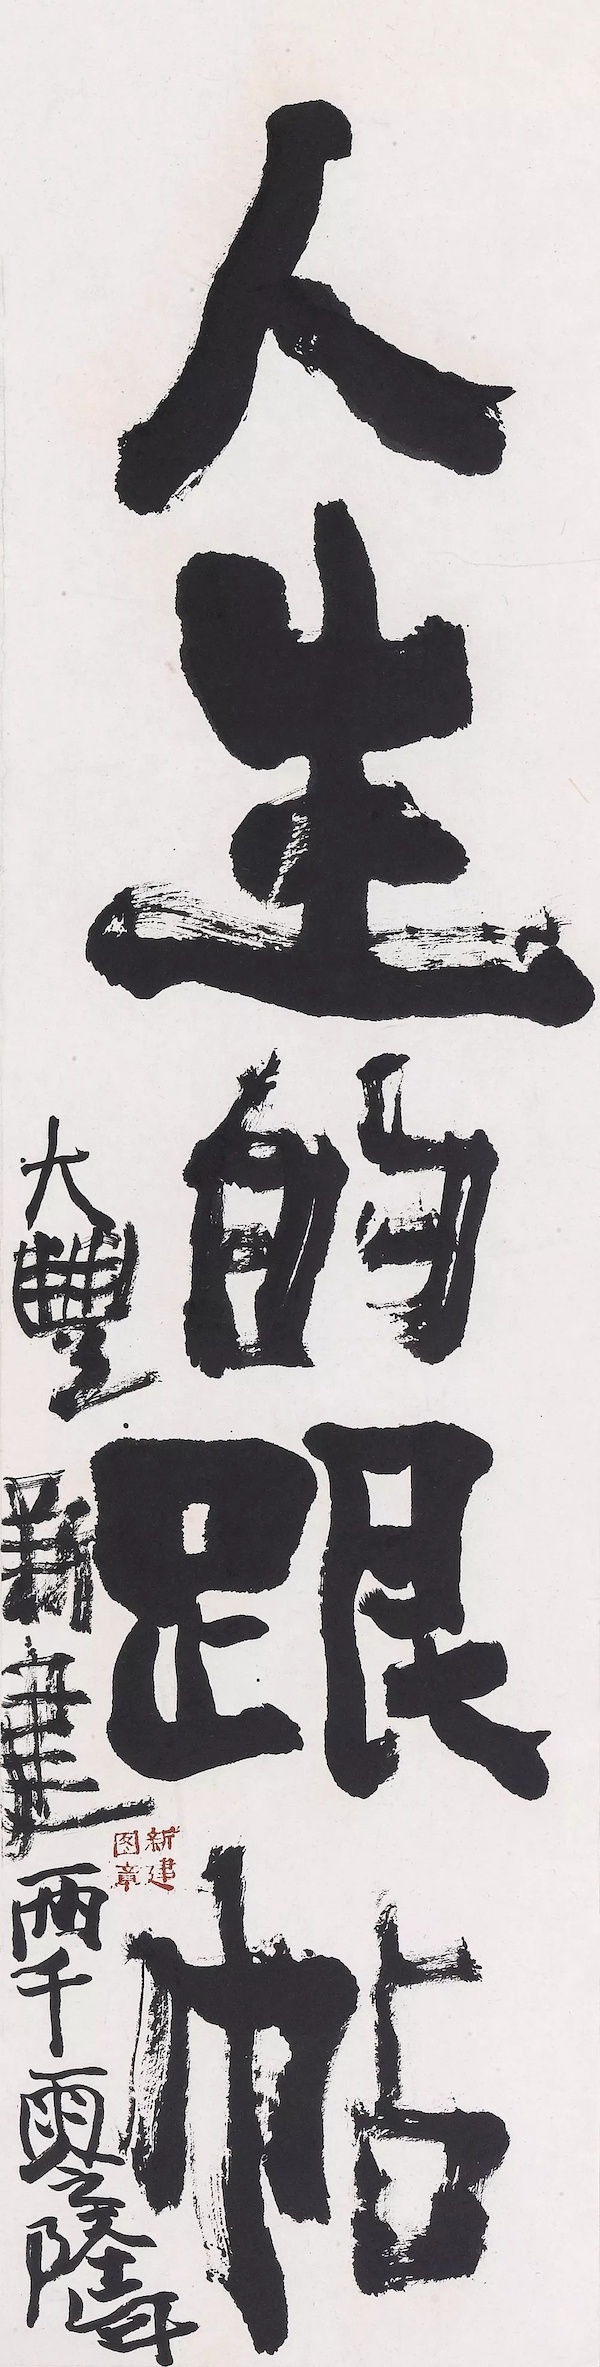 人生的跟帖
大豐新建兩千零陸年
新建图章